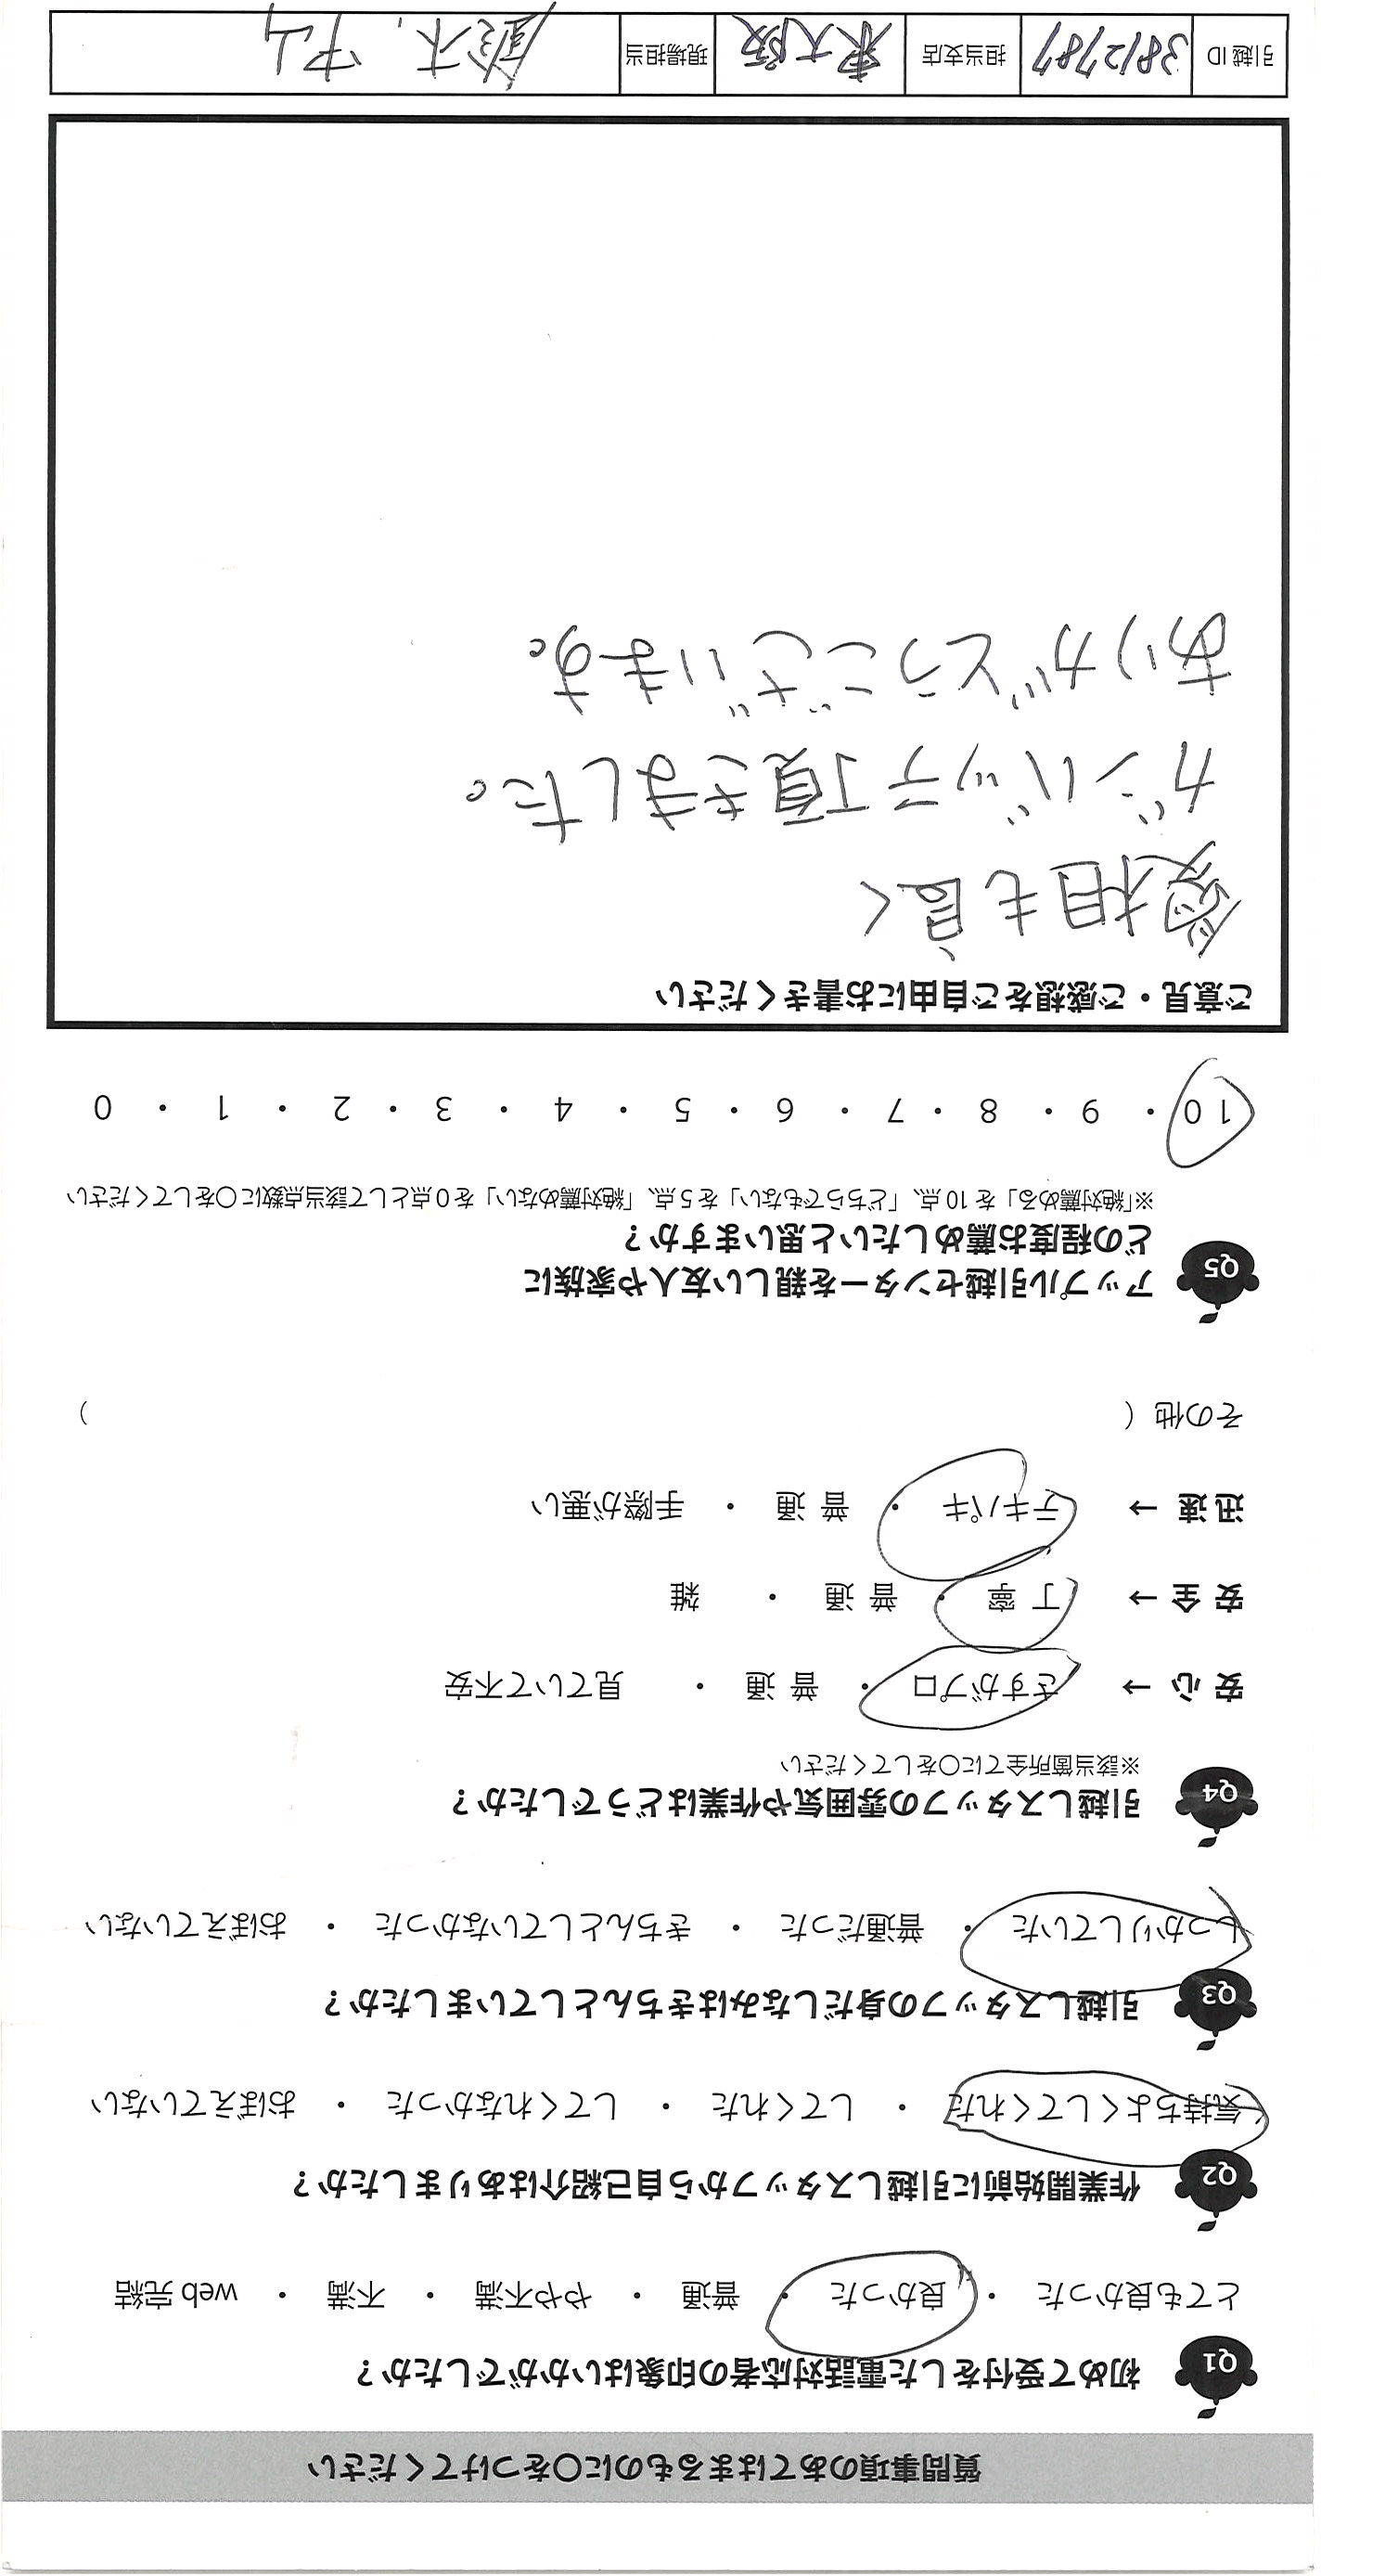 質問事項のあてはまるものに〇をつけてください
Q1 初めて受付をした電話対応者の印象はいかがでしたか？
とても良かった ・ 良かった ・ 普通 ・ やや不満 ・ 不満 ・ web 完結
Q2 作業開始前に引越しスタッフから自己紹介はありましたか？
気持ちよくしてくれた ・ してくれた ・ してくれなかった ・ おぼえていない
Q3 引越しスタッフの身だしなみはきちんとしていましたか？
しっかりしていた ・ 普通だった ・ きちんとしていなかった ・ おぼえていない
Q4 引越しスタッフの雰囲気や作業はどうでしたか？
※該当箇所全てに〇をしてください
安 心 → さすがプロ ・ 普 通 ・ 見ていて不安
安 全 → 丁 寧 ・ 普 通 ・ 雑
迅 速 → テキパキ ・ 普 通 ・ 手際が悪い
その他（ ）
Q5 アップル引越センターを親しい友人や家族に
どの程度お薦めしたいと思いますか？
※「絶対薦める」を 10 点、「どちらでもない」を 5 点、「絶対薦めない」を 0 点として該当点数に〇をしてください
10 ・ 9 ・ 8 ・ 7 ・ 6 ・ 5 ・ 4 ・ 3 ・ 2 ・ 1 ・ 0
ご意見・ご感想をご自由にお書きください
愛相も良く
ガンバッテ頂きました。
ありがとうございます。
引越 ID 3812787 担当支店 東大阪 現場担当 鈴木, 中山